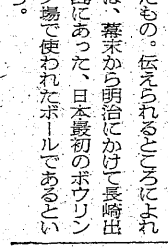 たもの。伝えられるところによれ
ば、幕末から明治にかけて長崎出
島にあった、日本最初のボウリン
グ場で使われたボールであるとい
う。